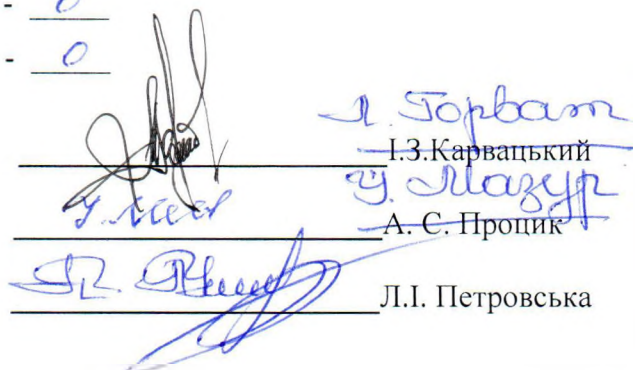 - 0
- 0
Л. Горват
І.З.Карвацький
У. Мазур
А. С. Процик
Л.І. Петровська